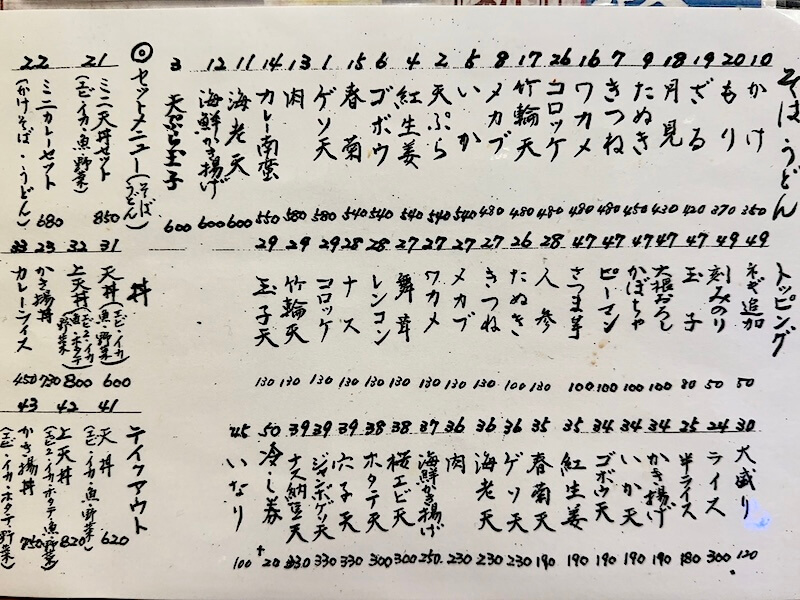 そば・うどん
10 かけ 350
20 もり 370
19 ざる 420
18 月見 430
9 たぬき 450
7 きつね 480
16 ワカメ 480
26 コロッケ 480
17 竹輪天 480
8 メカブ 480
5 いか 540
2 天ぷら 540
4 紅生姜 540
6 ゴボウ 540
15 春菊 540
1 ゲソ天 580
13 肉 580
14 カレー南蛮 550
11 海老天 600
12 海鮮かき揚げ 600
3 天ぷら玉子 600
◎セットメニュー(そば うどん)
21 ミニ天丼セット 850
(エビ・イカ・魚・野菜)
22 ミニカレーセット 680
(かけそば・うどん)
トッピング
49 ネギ追加 50
49 刻みのり 50
47 玉子 80
47 大根おろし 100
47 かぼちゃ 100
47 ピーマン 100
47 さつま芋 100
28 人参 130
26 たぬき 100
27 きつね 130
27 メカブ 130
27 ワカメ 130
27 舞茸 130
28 レンコン 130
28 ナス 130
29 コロッケ 130
29 竹輪天 130
29 玉子天 130
丼
31 天丼(エビ・イカ 魚・野菜) 600
32 上天丼(エビ2・イカ ホタテ 野菜) 800
23 かき揚丼 730
33 カレーライス 450
30 大盛り 120
24 ライス 300
25 半ライス 180
34 かき揚げ 190
34 いか天 190
34 ゴボウ天 190
35 紅生姜 190
35 春菊天 190
36 ゲソ天 230
36 海老天 230
36 肉 230
37 海鮮かき揚げ 250
38 桜エビ天 300
38 ホタテ天 300
39 穴子天 330
39 ジャンボゲソ天 330
39 ナス納豆天 330
50 冷し券 +20
45 いなり 100
テイクアウト
41 天丼 620
(エビ・イカ・魚・野菜)
42 上天丼 820
(エビ2・イカ・ホタテ・魚・野菜)
43 かき揚丼 750
(エビ・イカ・ホタテ・野菜)